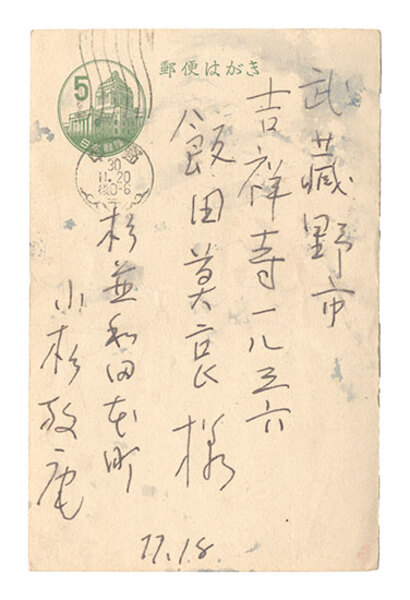 郵便はがき
5
日本郵便
30
11.20
後0-6
武蔵野市
吉祥寺一八三六
飯田莫哀様
杉並和田本町
小杉放庵
11.18.